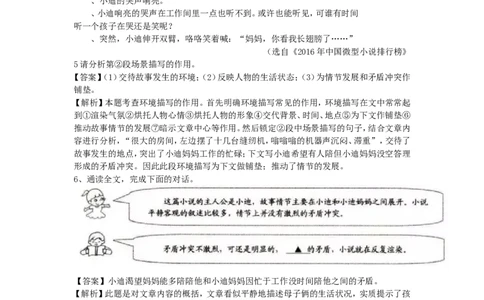 、小迪的哭声响亮。
、小迪响亮的哭声在工作间里一点也听不到。或许也能听见，可谁有时间
听一个孩子在哭还是笑呢？
、突然，小迪伸开双臂，咯咯笑着喊：“妈妈，你看我长翅膀了……”
（选自《2016年中国微型小说排行榜》
5请分析第②段场景描写的作用。
【答案】（1）交待故事发生的环境；（2）反映人物的生活状态；（3）为情节发展和矛盾冲突作
铺垫。
【解析】本题考查环境描写的作用。首先明确环境描写常见的作用，环境描写在文中常常起
到①渲染气氛②烘托人物心情③烘托人物的形象④交代背景、时间、地点⑤为下文作铺垫⑥
推动故事情节的发展⑦暗示文章中心等作用。然后锁定②段中场景描写的句子，结合文章内
容进行分析，“很大的房间，左边摆了十几台缝纫机，嗡嗡嗡的机器声沉闷、滞重”，交待了
故事发生的地点，突出了小迪妈妈工作的忙碌；下文写小迪希望有人陪但小迪妈妈没空答理
形成的矛盾冲突。因此此段环境描写为下文做铺垫；推动了情节的发展。
6、通读全文，完成下面的对话。
这篇小说的主人公是小迪，故事情节主要在小迪和小迪妈妈之间展开。小说
平静客观的叙述比较多，情节上并没有激烈的矛盾冲突。
矛盾冲突不激烈，可还是明显的， ▲ 的矛盾，小说就在反复渲染。
【答案】小迪渴望妈妈能多陪陪他和小迪妈妈因忙于工作没时间陪他之间的矛盾。
【解析】此题是对文章内容的概括，文章看似平静地描述母子俩的生活状况，实质提示了孩